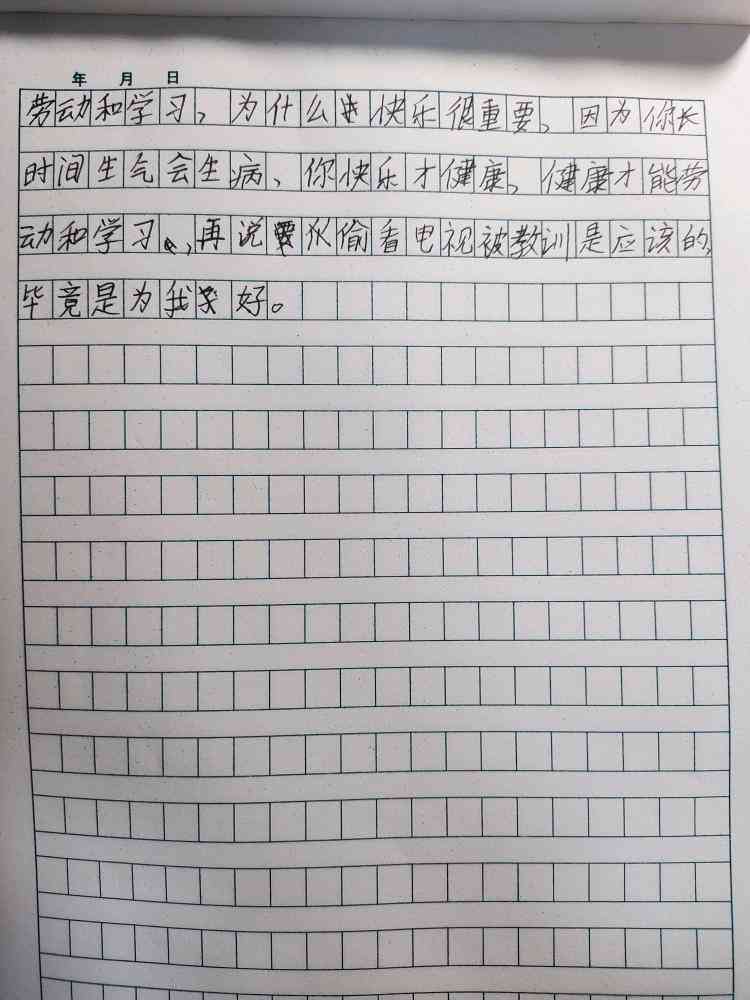 年 月 日
劳动和学习，为什么快乐很重要，因为你长
时间生气会生病、你快乐才健康，健康才能劳
动和学习，再说偷看电视被教训是应该的，
毕竟是为我好。